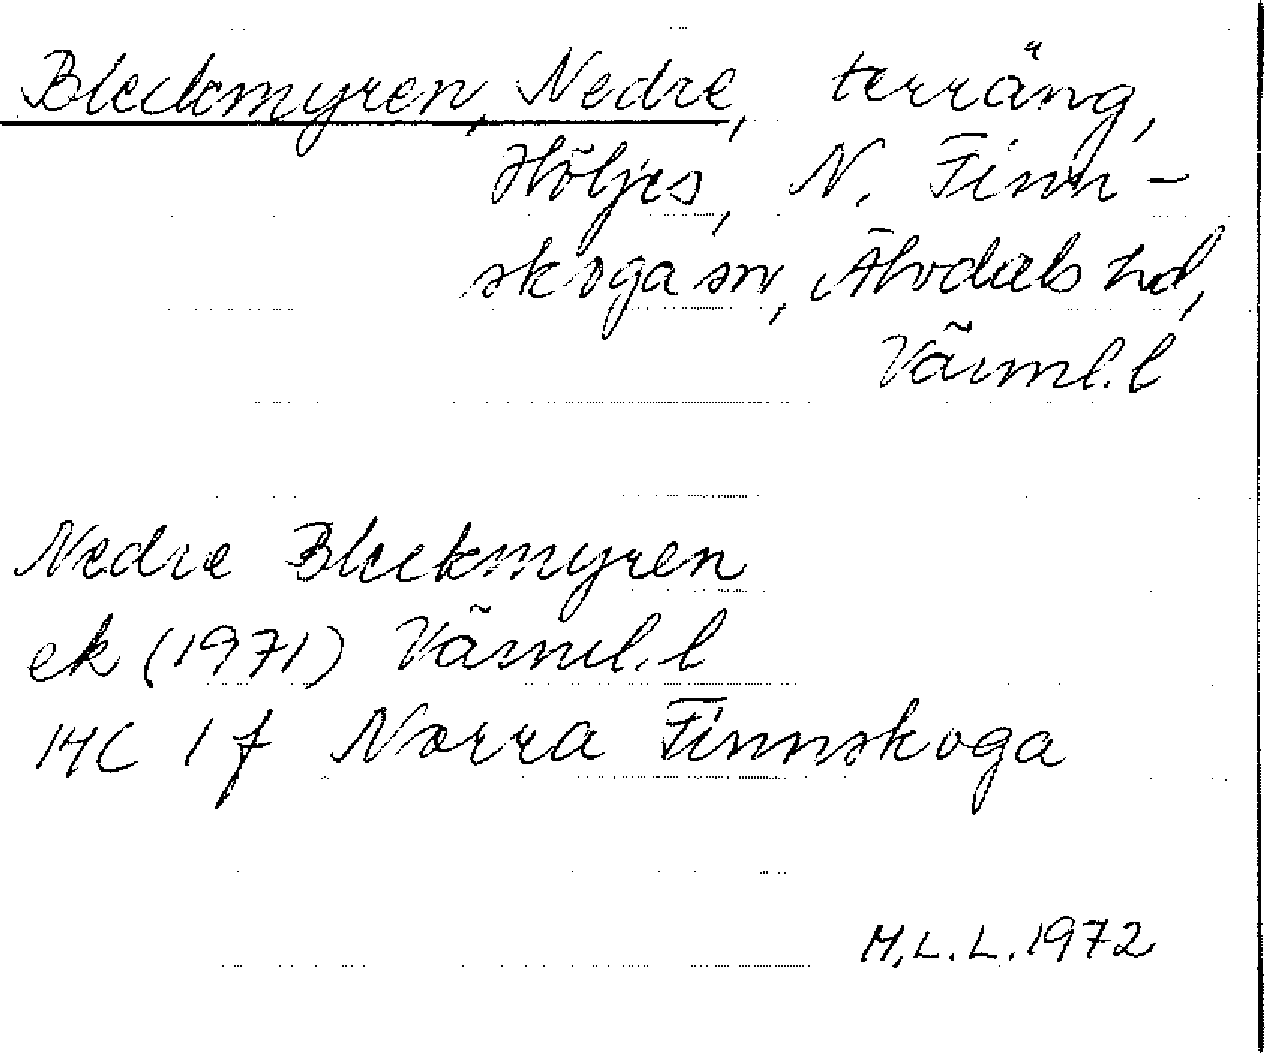 Bleckmyren, Nedre, terräng,
Höljes, N. Finn-
skoga sn, Älvdals hd,
Värml. l
Nedre Bleckmyren
ek (1971) Värml. l
14C 1 f Norra Finnskoga
M.L.L. 1972